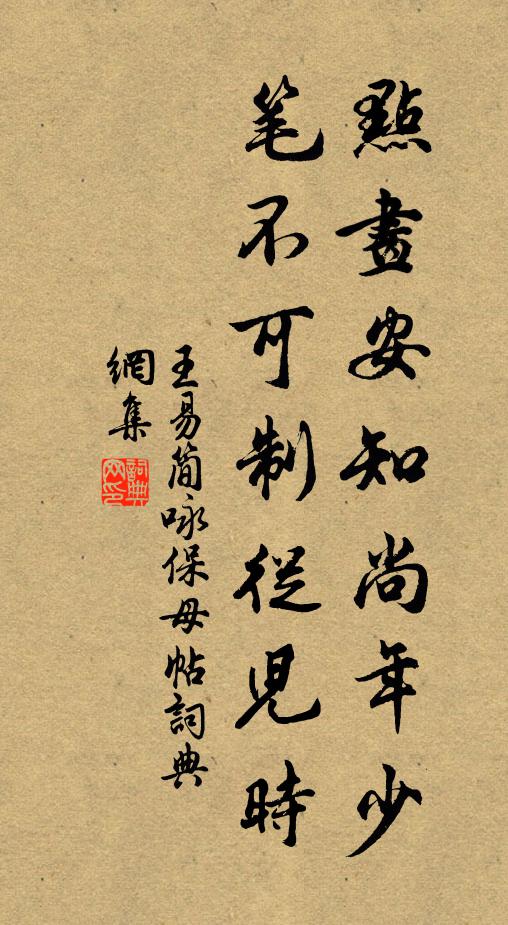 點畫安知尚年少
笔不可制從兒時
王易简咏保母帖詞典
網集
詞典網印